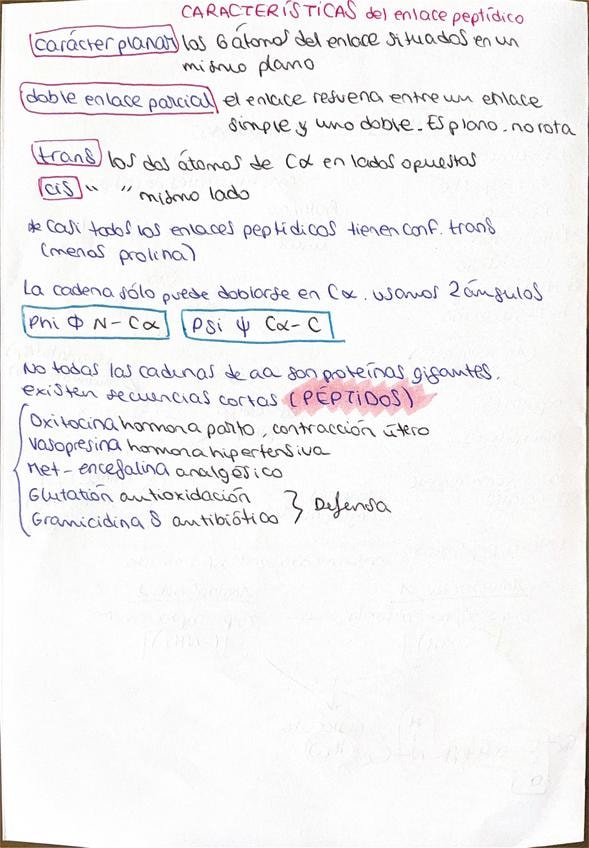 CARACTERÍSTICAS del enlace peptídico
carácter planar los 6 átomos del enlace situados en un
mismo plano
doble enlace parcial el enlace resuena entre un enlace
simple y uno doble. Es plano. no rota
trans los dos átomos de Cα en lados opuestos
cis " " mismo lado
* casi todos los enlaces peptídicos tienen conf. trans
(menos prolina)
La cadena sólo puede doblarse en Cα. usamos 2 ángulos
Phi Φ N-Cα Psi Ψ Cα-C
No todas las cadenas de aa son proteínas gigantes.
existen secuencias cortas (PÉPTIDOS)
Oxitocina hormona parto, contracción útero
Vasopresina hormona hipertensiva
Met-encefalina analgésico
Glutatión antioxidación
Gramicidina S antibiótico } Defensa